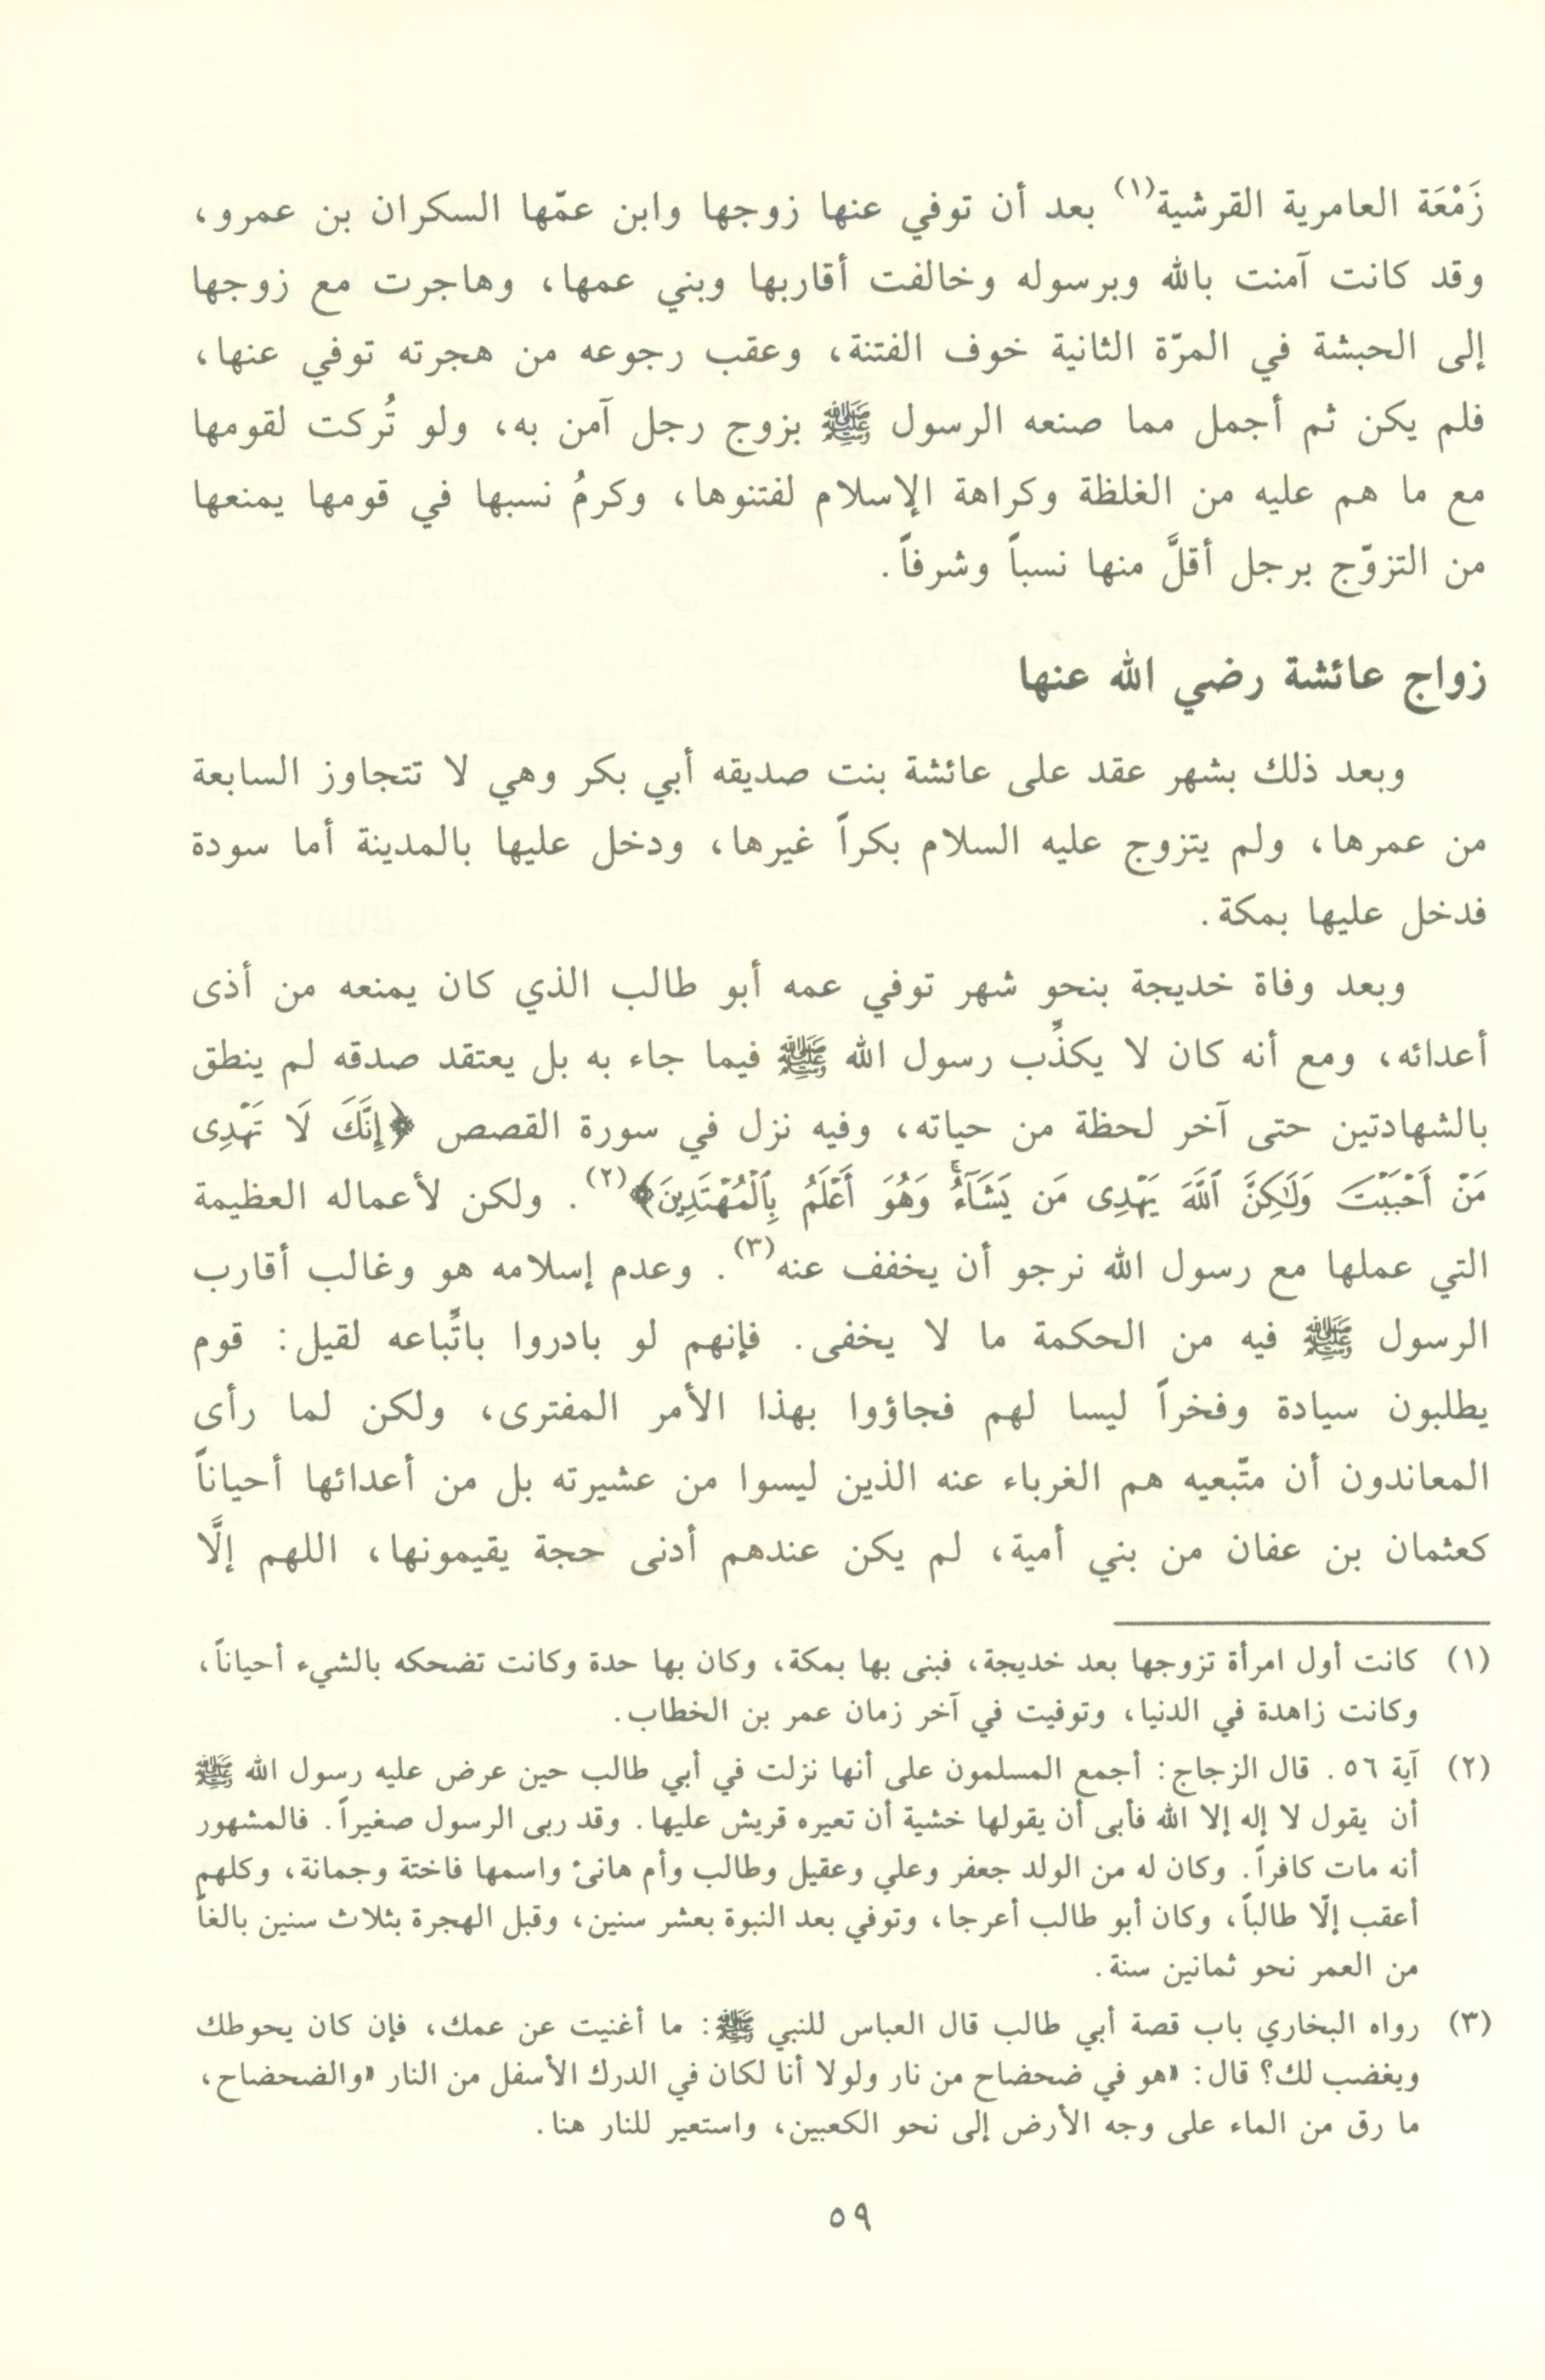 زَمْعَة العامرية القرشية(١) بعد أن توفي عنها زوجها وابن عمّها السكران بن عمرو،
وقد كانت آمنت بالله وبرسوله وخالفت أقاربها وبني عمها، وهاجرت مع زوجها
إلى الحبشة في المرّة الثانية خوف الفتنة، وعقب رجوعه من هجرته توفي عنها،
فلم يكن ثم أجمل مما صنعه الرسول ﷺ بزوج رجل آمن به، ولو تُركت لقومها
مع ما هم عليه من الغلظة وكراهة الإسلام لفتنوها، وكرمُ نسبها في قومها يمنعها
من التزوّج برجل أقلَّ منها نسباً وشرفاً.
زواج عائشة رضي الله عنها
وبعد ذلك بشهر عقد على عائشة بنت صديقه أبي بكر وهي لا تتجاوز السابعة
من عمرها، ولم يتزوج عليه السلام بكراً غيرها، ودخل عليها بالمدينة أما سودة
فدخل عليها بمكة.
وبعد وفاة خديجة بنحو شهر توفي عمه أبو طالب الذي كان يمنعه من أذى
أعدائه، ومع أنه كان لا يكذِّب رسول الله ﷺ فيما جاء به بل يعتقد صدقه لم ينطق
بالشهادتين حتى آخر لحظة من حياته، وفيه نزل في سورة القصص ﴿إِنَّكَ لَا تَهْدِى
مَنْ أَحْبَبْتَ وَلَٰكِنَّ ٱللَّهَ يَهْدِى مَن يَشَآءُ ۚ وَهُوَ أَعْلَمُ بِٱلْمُهْتَدِينَ﴾(٢). ولكن لأعماله العظيمة
التي عملها مع رسول الله نرجو أن يخفف عنه(٣). وعدم إسلامه هو وغالب أقارب
الرسول ﷺ فيه من الحكمة ما لا يخفى. فإنهم لو بادروا باتِّباعه لقيل: قوم
يطلبون سيادة وفخراً ليسا لهم فجاؤوا بهذا الأمر المفترى، ولكن لما رأى
المعاندون أن متّبعيه هم الغرباء عنه الذين ليسوا من عشيرته بل من أعدائها أحياناً
كعثمان بن عفان من بني أمية، لم يكن عندهم أدنى حجة يقيمونها، اللهم إلَّا
(١) كانت أول امرأة تزوجها بعد خديجة، فبنى بها بمكة، وكان بها حدة وكانت تضحكه بالشيء أحياناً،
وكانت زاهدة في الدنيا، وتوفيت في آخر زمان عمر بن الخطاب.
(٢) آية ٥٦. قال الزجاج: أجمع المسلمون على أنها نزلت في أبي طالب حين عرض عليه رسول الله ﷺ
أن يقول لا إله إلا الله فأبى أن يقولها خشية أن تعيره قريش عليها. وقد ربى الرسول صغيراً. فالمشهور
أنه مات كافراً. وكان له من الولد جعفر وعلي وعقيل وطالب وأم هانئ واسمها فاختة وجمانة، وكلهم
أعقب إلّا طالباً، وكان أبو طالب أعرجا، وتوفي بعد النبوة بعشر سنين، وقبل الهجرة بثلاث سنين بالغاً
من العمر نحو ثمانين سنة.
(٣) رواه البخاري باب قصة أبي طالب قال العباس للنبي ﷺ: ما أغنيت عن عمك، فإن كان يحوطك
ويغضب لك؟ قال: «هو في ضحضاح من نار ولولا أنا لكان في الدرك الأسفل من النار «والضحضاح،
ما رق من الماء على وجه الأرض إلى نحو الكعبين، واستعير للنار هنا.
٥٩